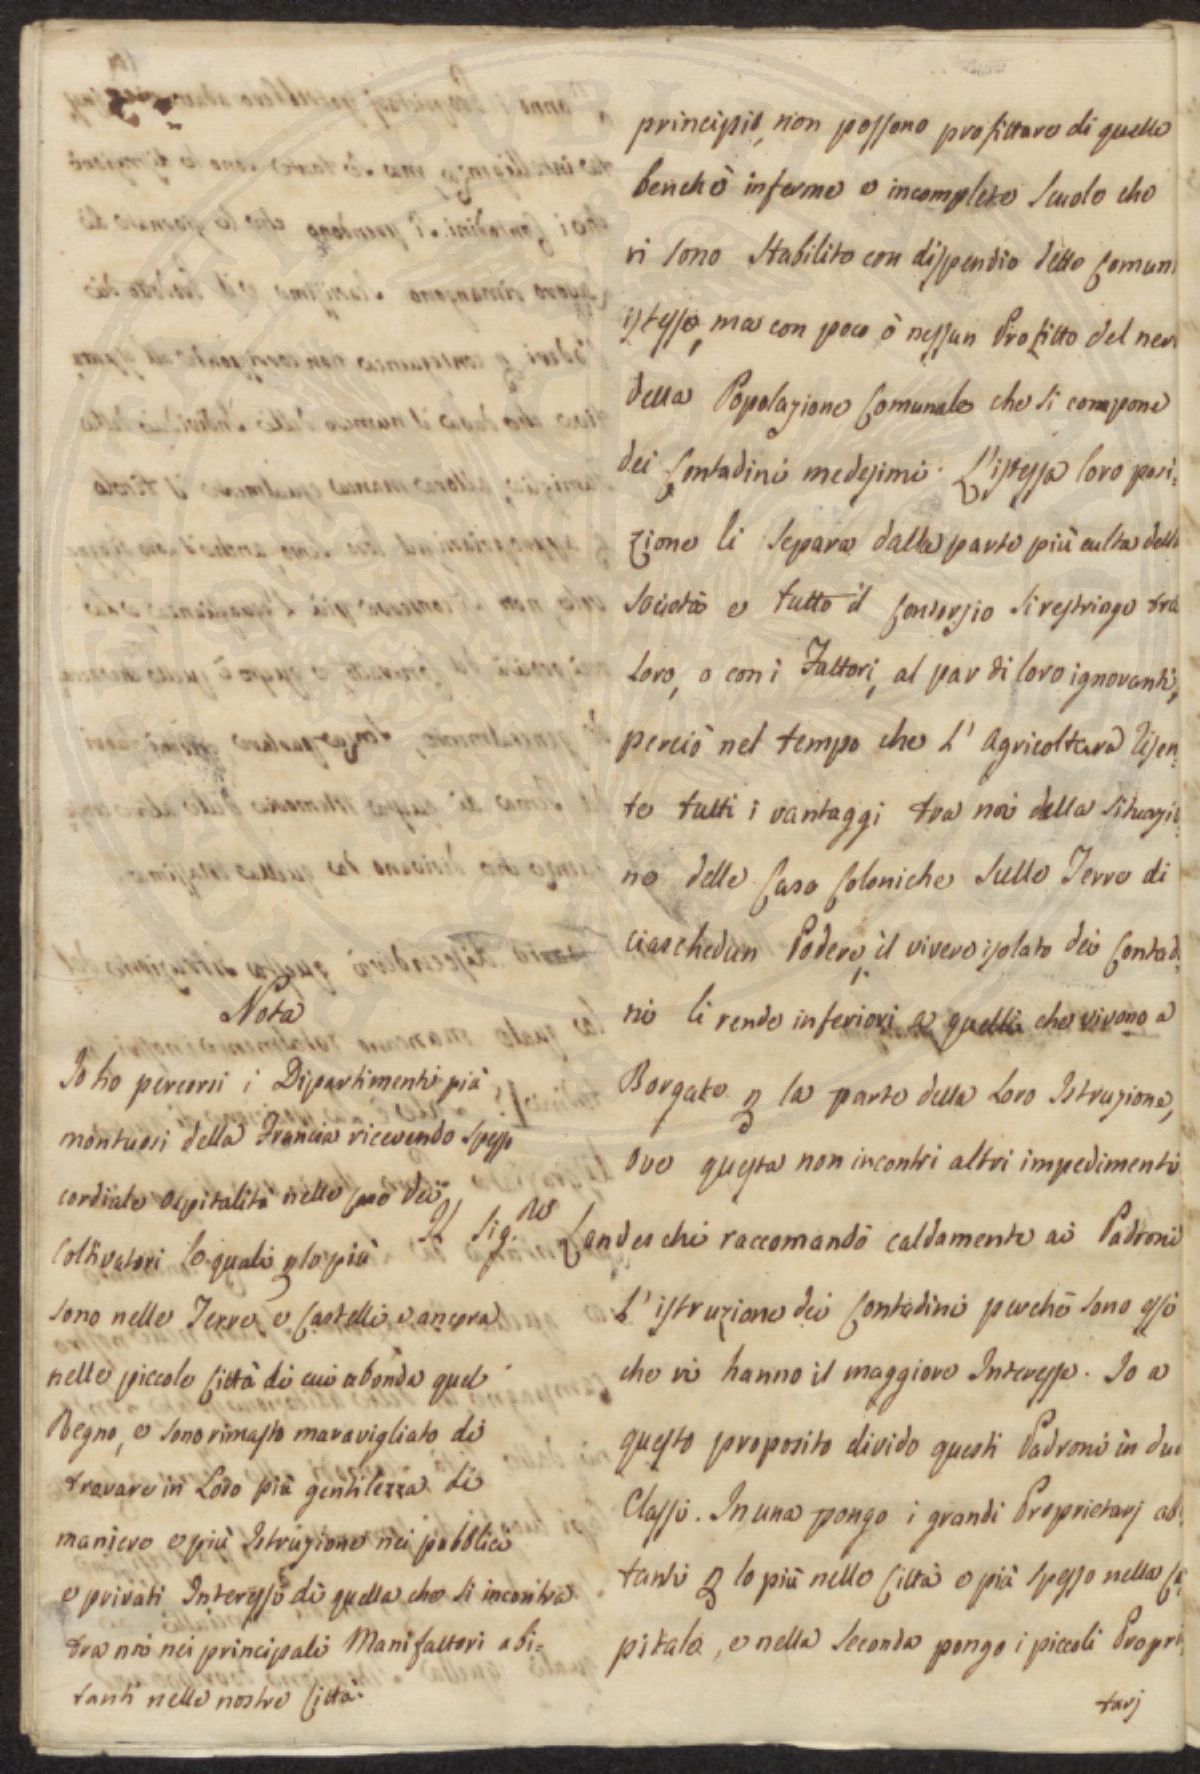 principio, non possono profittare di quelle
benchè informe e incomplete Scuole che
vi sono Stabilite con dispendio delle Comuni
istesse, ma con poco ò nessun Profitto del ner
della Popolazione Comunale che si compone
dei Contadini medesimi. L'istessa loro posi:
zione li separa dalla parte più culta della
Società e tutto il Consorzio si restringe tra
loro, o con i Fattori, al par di loro ignoranti,
perciò nel tempo che L' Agricoltura Risen:
te tutti i vantaggi tra noi della situazio:
ne delle Case Coloniche sulle Terre di
ciaschedun Podere, il vivere isolato dei Contadi:
ni li rende inferiori a quelli che vivono a
Borgate p la parte della Loro Istruzione,
ove questa non incontri altri impedimenti
Il Sig.re Landeschi raccomandò caldamente ai Padroni
L' istruzione dei Contadini perchè sono essi
che vi hanno il maggiore Interesse. Io a
questo proposito divido questi Padroni in due
Classi. In una pongo i grandi Proprietarj abi
tanti p lo più nelle Città e più spesso nella Ca
pitale, e nella seconda pongo i piccoli Proprie
tarj
Nota
Io ho percorsi i Dipartimenti più
montuosi della Francia ricevendo spesso
cordiale ospitalità nelle Case dei
Coltivatori le quali p lo più
sono nelle Terre e Castelli e ancora
nelle piccole Città di cui abonda quel
Regno, e sono rimasto maravigliato di
trovare in Loro più gentilezza di
maniere e più Istruzione nei pubblici
e privati Interessi di quella che si incontra
tra noi nei principali Manifattori abi=
tanti nelle nostre Città.